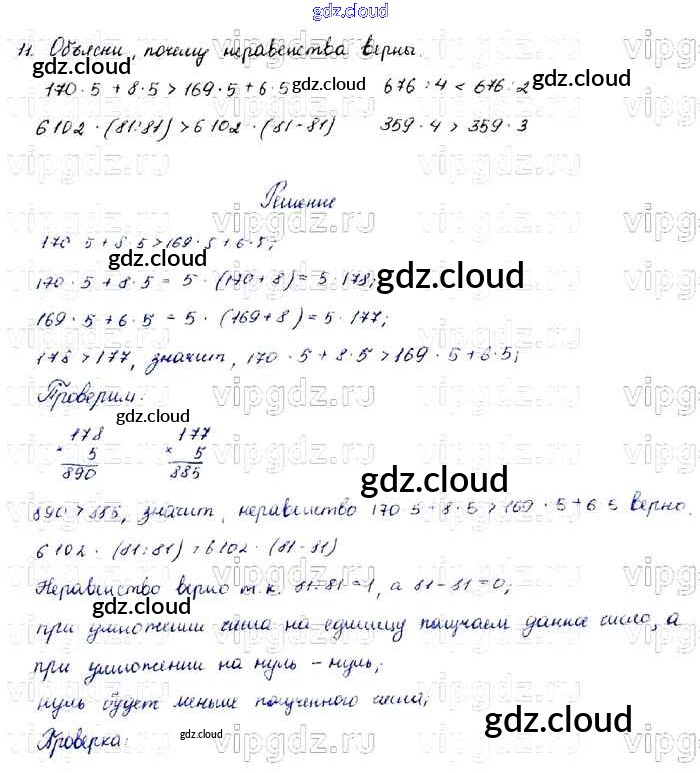 gdz.cloud
11. Объясни, почему неравенства верны.
170 · 5 + 8 · 5 > 169 · 5 + 6 · 5 676 : 4 < 676 : 2
6102 · (81:81) > 6102 · (81-81) 359 · 4 > 359 · 3
Решение
170 5 + 8 · 5 > 169 · 5 + 6 · 5;
170 · 5 + 8 · 5 = 5 · (170 + 8) = 5 · 178;
169 · 5 + 6 · 5 = 5 · (169 + 8) = 5 · 177;
178 > 177, значит, 170 · 5 + 8 · 5 > 169 · 5 + 6 · 5;
Проверим:
178 177
× 5 × 5
890 885
890 > 885, значит, неравенство 170 · 5 + 8 · 5 > 169 · 5 + 6 5 верно.
6102 · (81:81) > 6102 · (81-81)
Неравенство верно т.к. 81:81=1, а 81-81=0;
при умножении числа на единицу получаем данное число, а
при умножении на нуль - нуль;
нуль будет меньше полученного числа;
Проверка:
gdz.cloud
gdz.cloud
gdz.cloud
gdz.cloud
gdz.cloud
gdz.cloud
gdz.cloud
gdz.cloud
gdz.cloud
gdz.cloud
gdz.cloud
vipgdz.ru